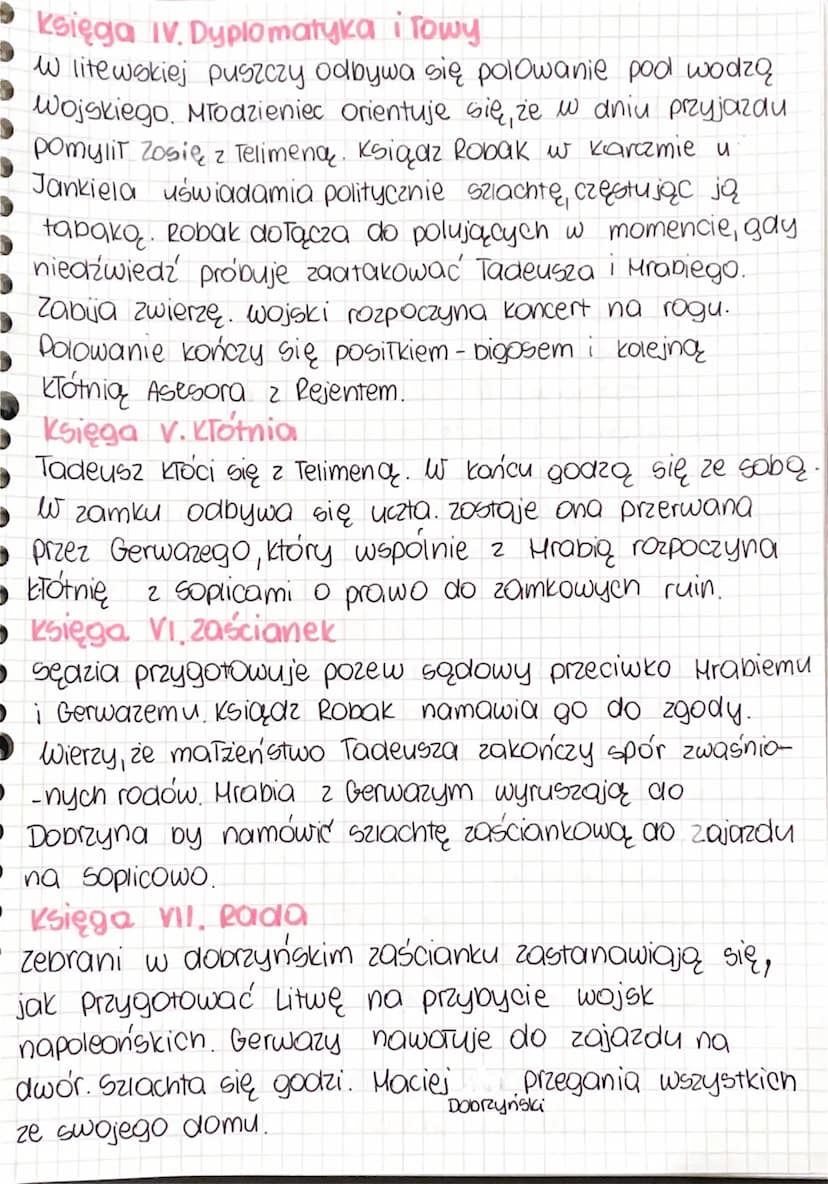 Księga IV. Dyplomatyka i łowy
W litewskiej puszczy odbywa się polowanie pod wodzą
Wojskiego. Młodzieniec orientuje się, że w dniu przyjazdu
pomylił Zosię z Telimeną. Ksiądz Robak w karczmie u
Jankiela uświadamia politycznie szlachtę, częstując ją
tabaką. Robak dołącza do polujących w momencie, gdy
niedźwiedź próbuje zaatakować Tadeusza i Hrabiego.
Zabija zwierzę. Wojski rozpoczyna koncert na rogu.
Polowanie kończy się posiłkiem - bigosem i kolejną
kłótnią Asesora z Rejentem.
Księga V. Kłótnia
Tadeusz kłóci się z Telimeną. W końcu godzą się ze sobą.
W zamku odbywa się uczta. Zostaje ona przerwana
przez Gerwazego, który wspólnie z Hrabią rozpoczyna
kłótnię z Soplicami o prawo do zamkowych ruin.
Księga VI. Zaścianek
Sędzia przygotowuje pozew sądowy przeciwko Hrabiemu
i Gerwazemu. Ksiądz Robak namawia go do zgody.
Wierzy, że małżeństwo Tadeusza zakończy spór zwaśnio-
-nych rodów. Hrabia z Gerwazym wyruszają do
Dobrzyna by namówić szlachtę zaściankową do zajazdu
na Soplicowo.
Księga VII. Rada
Zebrani w dobrzyńskim zaścianku zastanawiają się,
jak przygotować Litwę na przybycie wojsk
napoleońskich. Gerwazy nawołuje do zajazdu na
dwór. Szlachta się godzi. Maciej Dobrzyński przegania wszystkich
ze swojego domu.